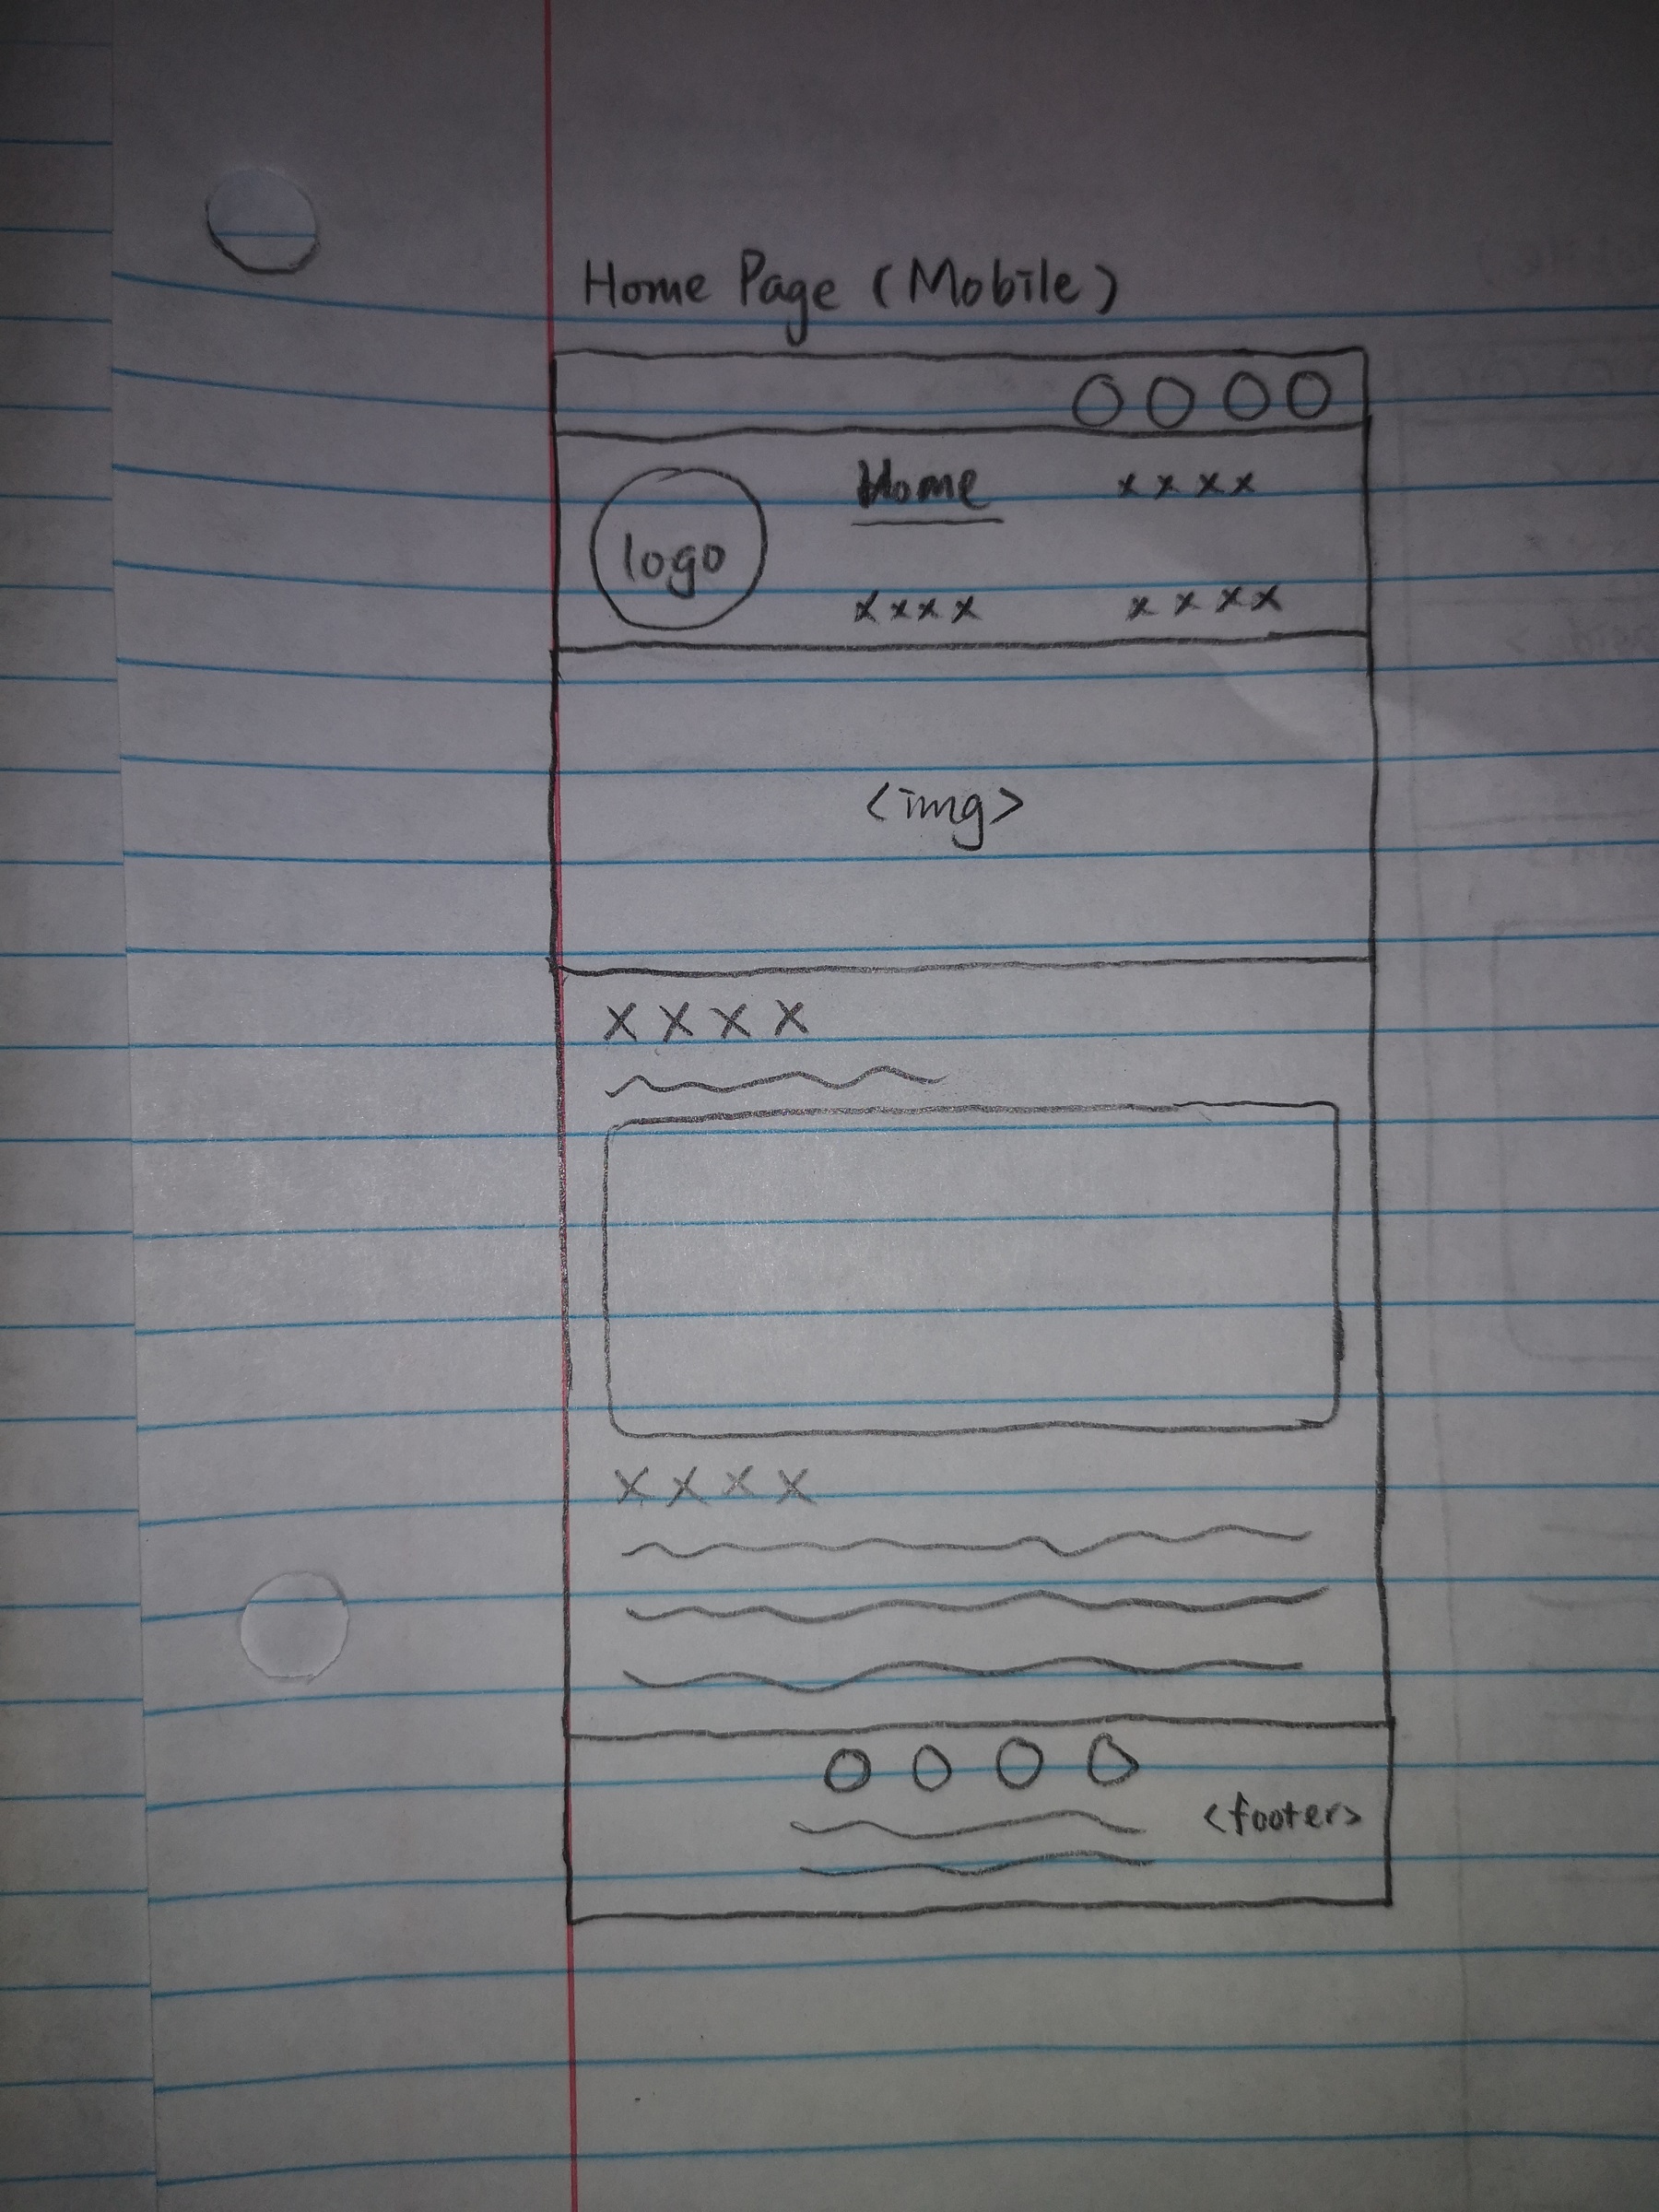 Home Page (Mobile)
Home xxxx
logo
xxxx xxxx
<img>
xxxx
xxxx
<footer>